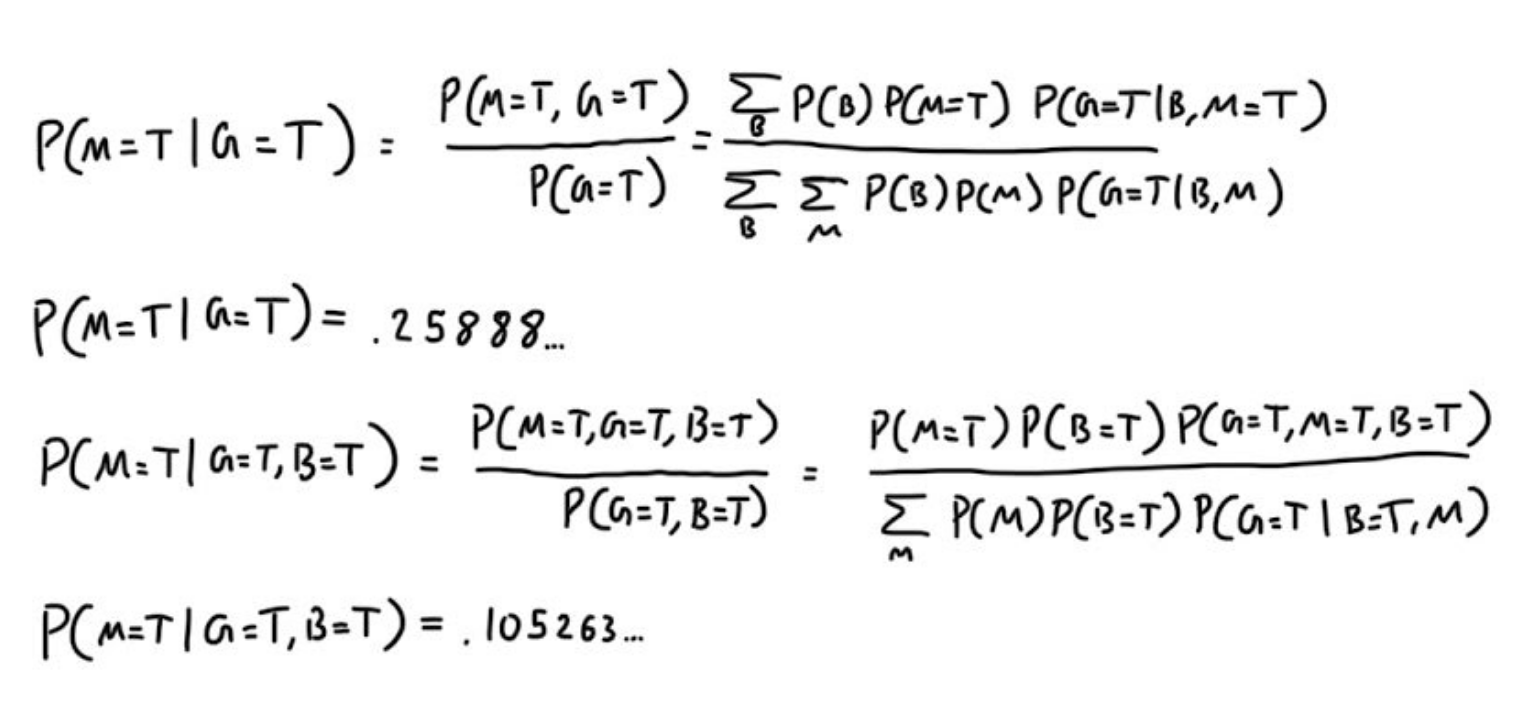 P(M=T | G=T) = P(M=T, G=T) / P(G=T) = Σ_B P(B) P(M=T) P(G=T|B,M=T) / Σ_B Σ_M P(B)P(M) P(G=T|B,M)
P(M=T | G=T) = .25888...
P(M=T | G=T, B=T) = P(M=T,G=T,B=T) / P(G=T,B=T) = P(M=T) P(B=T) P(G=T,M=T,B=T) / Σ_M P(M)P(B=T) P(G=T | B=T,M)
P(M=T | G=T, B=T) = .105263...